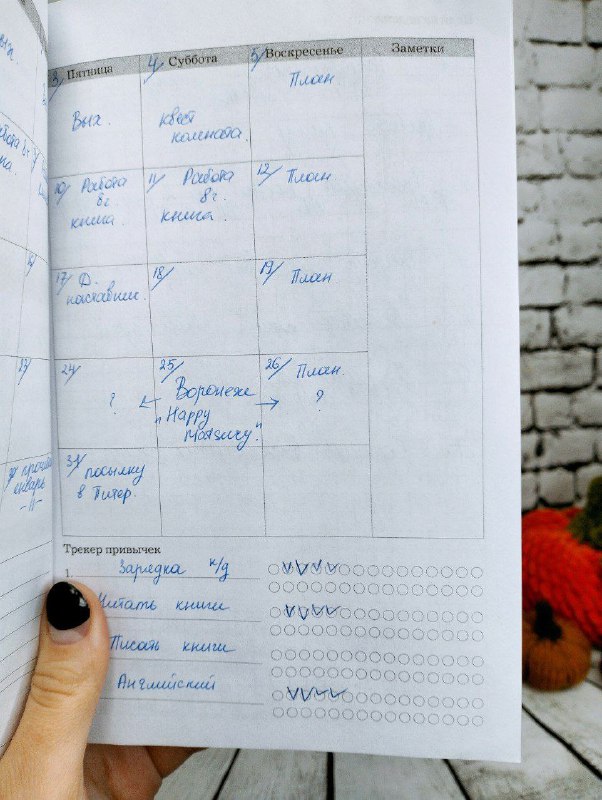 3/ Пятница
4/ Суббота
5/ Воскресенье
Заметки
Вых.
квест
комната.
План
10/ Работа
8г
книга.
11/ Работа
8г.
книга.
12/ План
17/ Д.
наставник.
18/
19/ План
24/
?
25/
← Воронеж →
"Happy
Моязину."
26/ План
?
31/ посылку
в Питер.
Трекер привычек
1. Зарядка к/д
Читать книги
Писать книги
Английский